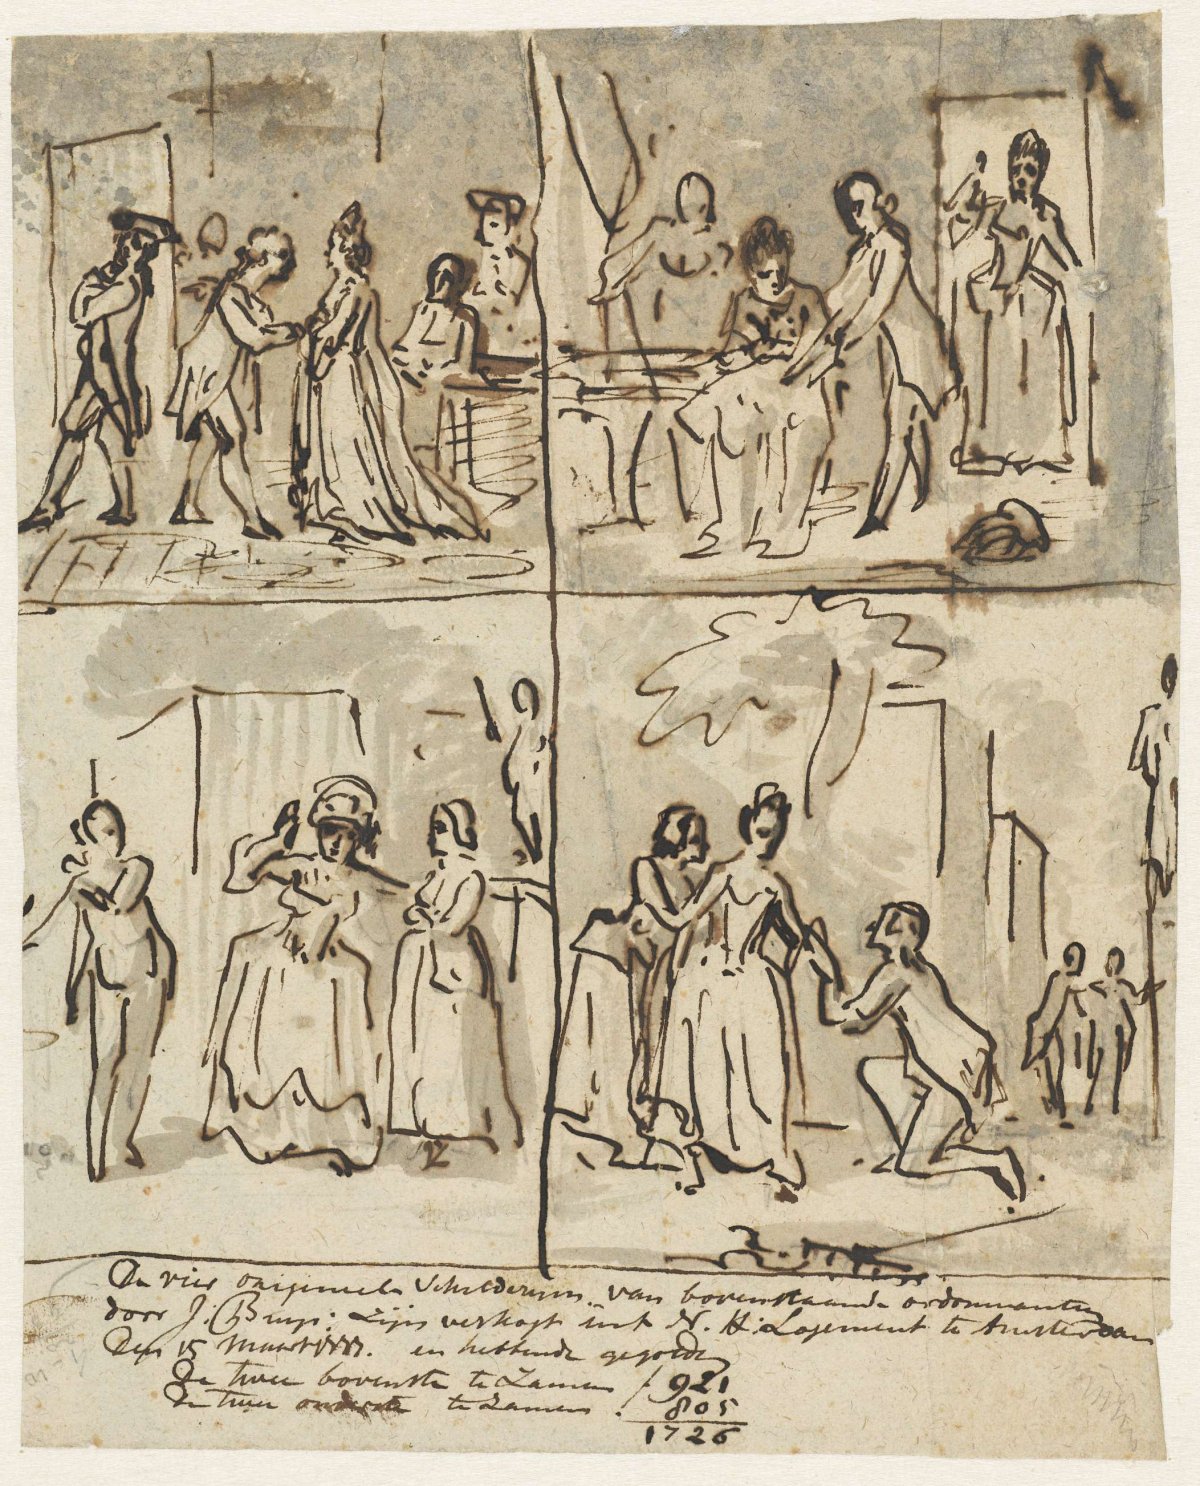 De vier origineele Schilderijen van bovenstaande ordonnantien
door J. Buys. Zijn verkogt in't N. H: Logement te Amsterdam
Den 15 Maart en hebbende gegolden
De twee bovenste te Zamen f 921
De twee onderste te Zamen . 805
1726